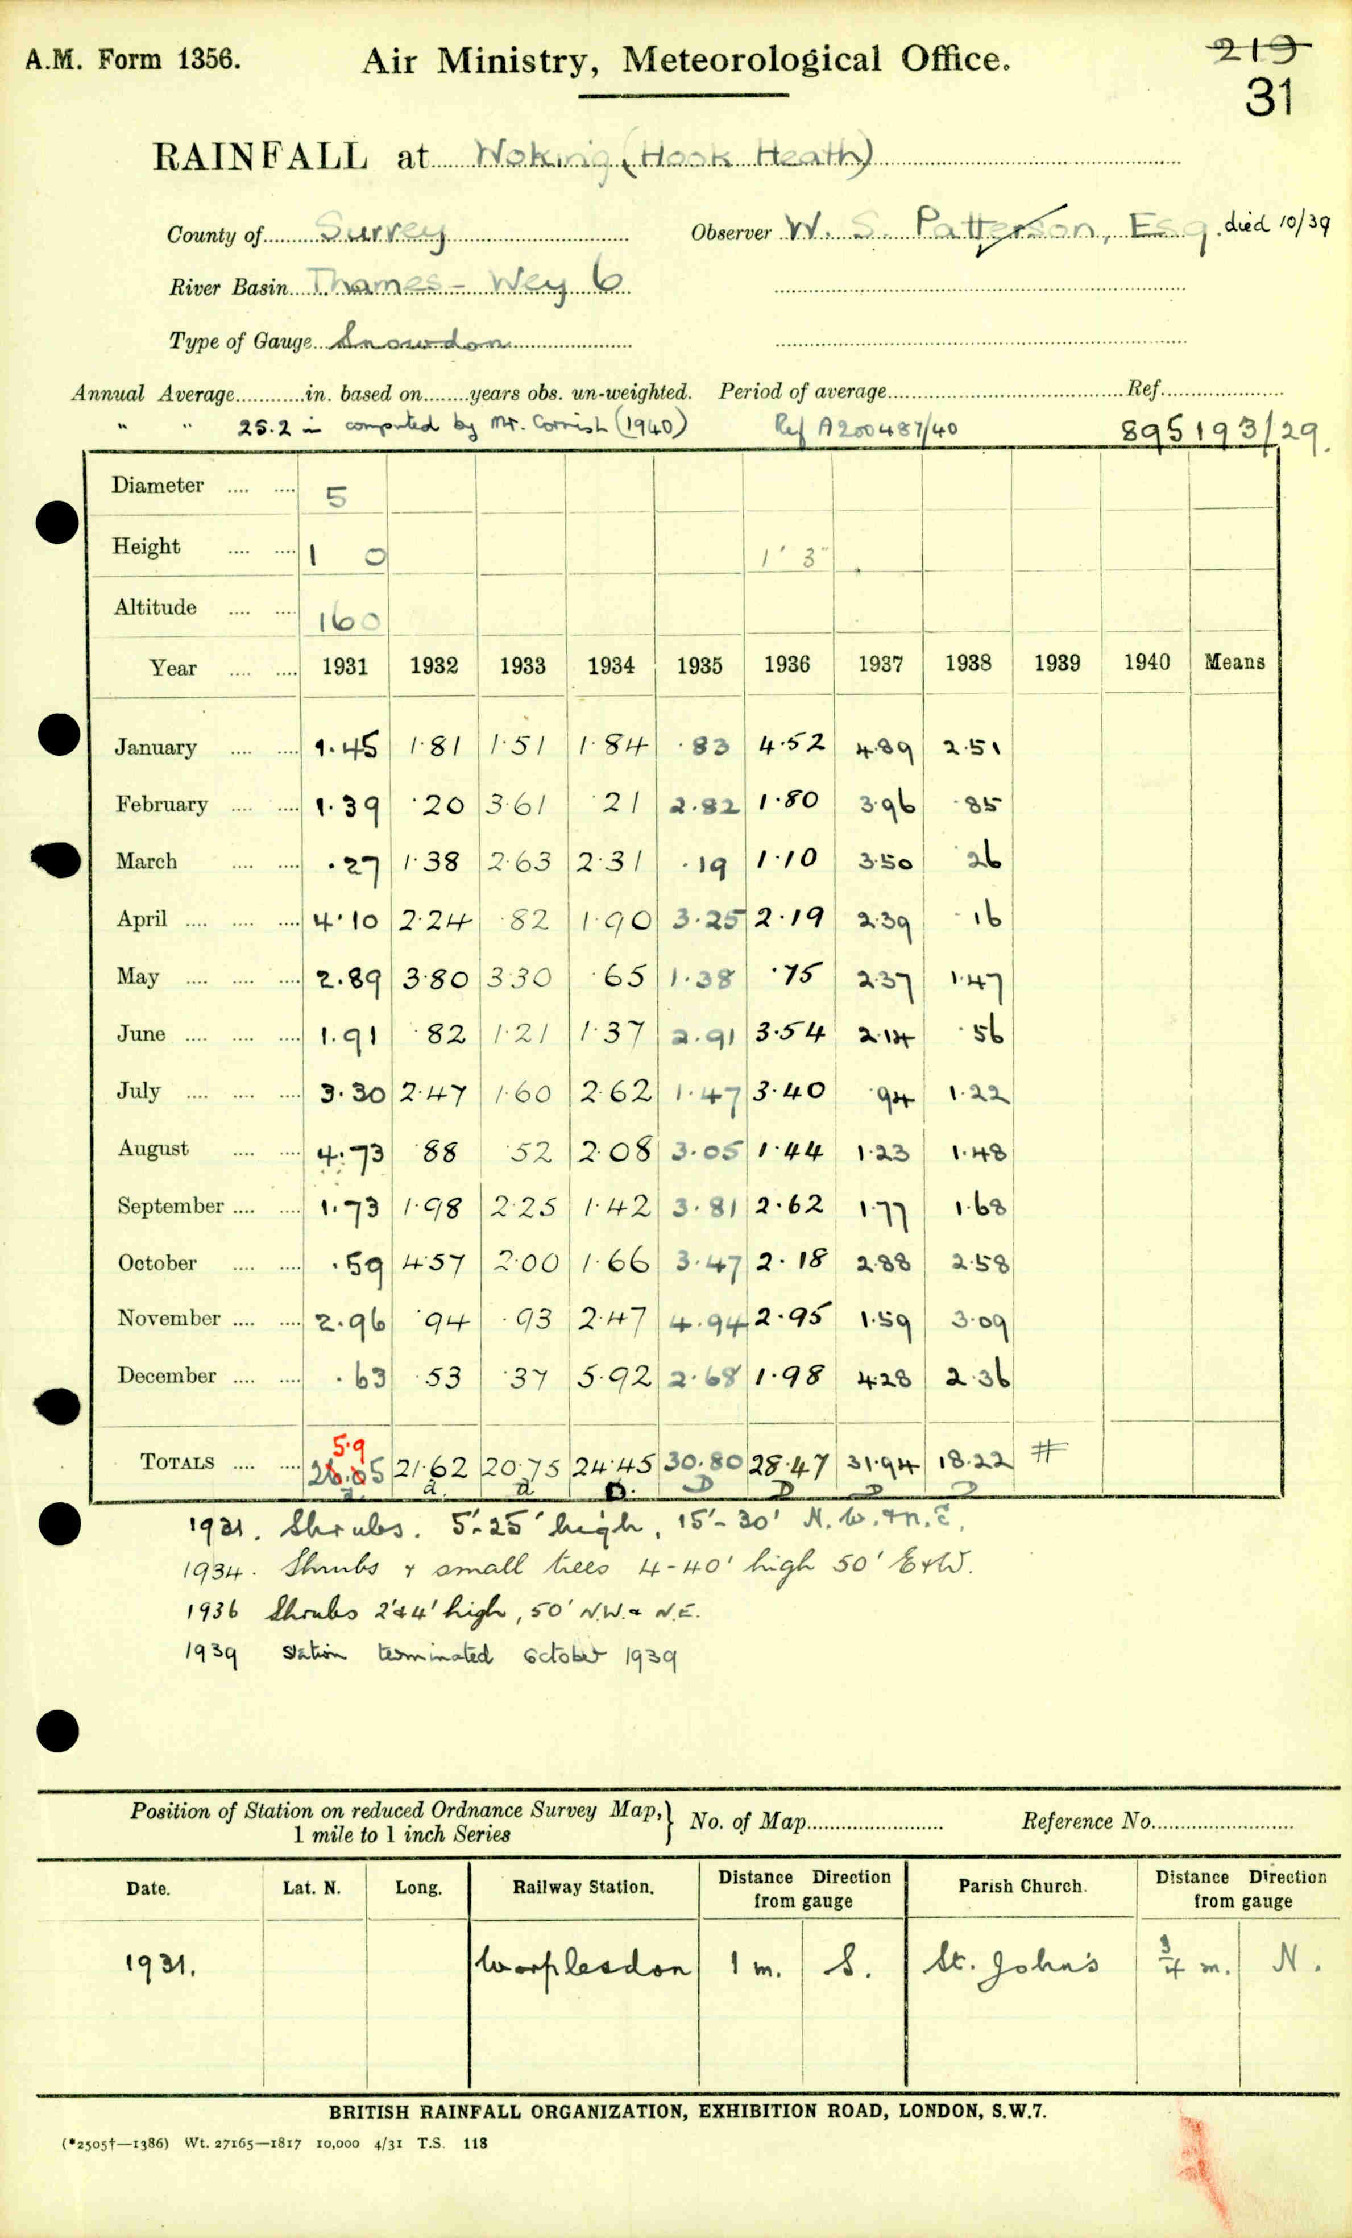 A.M. Form 1356.
Air Ministry, Meteorological Office.
219
31
RAINFALL at Woking (Hook Heath)
County of Surrey Observer W. S. Patterson, Esq. died 10/39
River Basin Thames - Wey 6
Type of Gauge Snowdon
Annual Average............in. based on........years obs. un-weighted. Period of average.......... Ref..........
" " 25.2 in computed by Mr. Cornish (1940) Ref A200487/40 895193/29.
Diameter .... .... 5
Height .... .... 1 0 1' 3"
Altitude .... .... 160
Year .... .... 1931 1932 1933 1934 1935 1936 1937 1938 1939 1940 Means
January .... .... 1.45 1.81 1.51 1.84 .83 4.52 4.89 2.51
February .... .... 1.39 .20 3.61 .21 2.82 1.80 3.96 .85
March .... .... .27 1.38 2.63 2.31 .19 1.10 3.50 .26
April .... .... .... 4.10 2.24 .82 1.90 3.25 2.19 2.39 .16
May .... .... .... 2.89 3.80 3.30 .65 1.38 .75 2.37 1.47
June .... .... .... 1.91 .82 1.21 1.37 2.91 3.54 2.14 .56
July .... .... .... 3.30 2.47 1.60 2.62 1.47 3.40 .94 1.22
August .... .... 4.73 .88 .52 2.08 3.05 1.44 1.23 1.48
September .... .... 1.73 1.98 2.25 1.42 3.81 2.62 1.77 1.68
October .... .... .59 4.57 2.00 1.66 3.47 2.18 2.88 2.58
November .... .... 2.96 .94 .93 2.47 4.94 2.95 1.59 3.09
December .... .... .63 .53 .37 5.92 2.68 1.98 4.28 2.36
5.9
TOTALS .... .... 26.05 21.62 20.75 24.45 30.80 28.47 31.94 18.22 #
d. d. d D. D D D D
1931. Shrubs. 5'-25' high, 15'-30' N.W. + N.E.
1934. Shrubs & small trees 4-40' high 50' E & W.
1936 Shrubs 2' & 4' high, 50' N.W. & N.E.
1939 Station terminated October 1939
Position of Station on reduced Ordnance Survey Map, } No. of Map.......... Reference No..........
1 mile to 1 inch Series
Date. Lat. N. Long. Railway Station. Distance Direction from gauge Parish Church. Distance Direction from gauge
1931. Worplesdon 1 m. S. St. John's 3/4 m. N.
BRITISH RAINFALL ORGANIZATION, EXHIBITION ROAD, LONDON, S.W.7.
(*2505†—1386) Wt. 27165—1817 10,000 4/31 T.S. 118